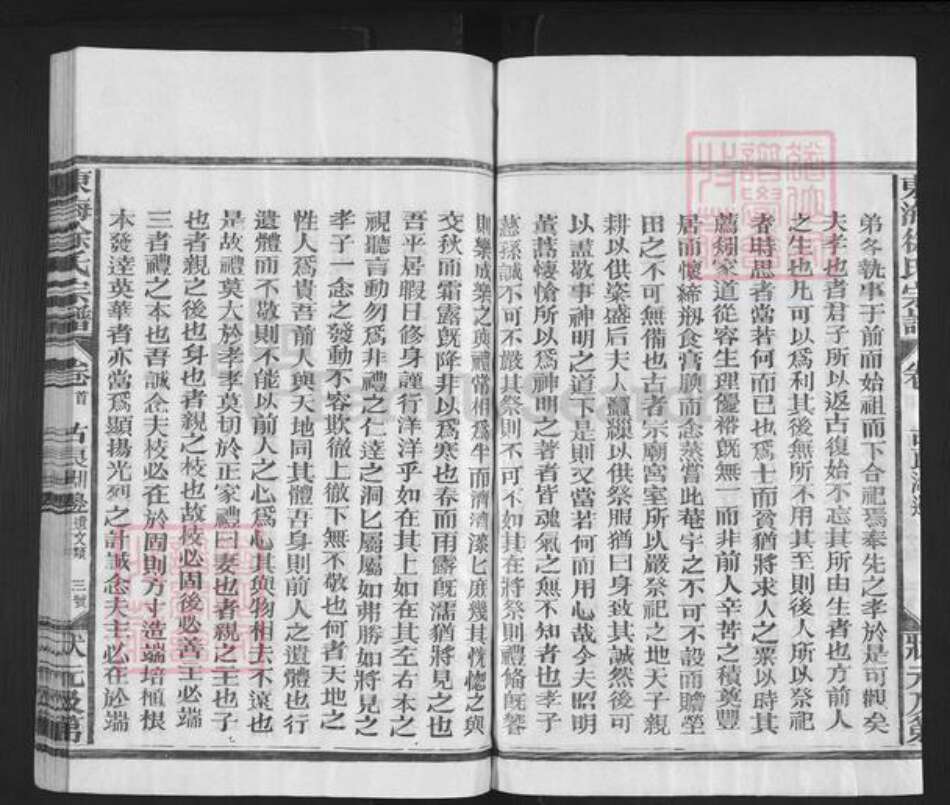 弟各執事于前而始祖而下合祀焉奉先之孝於是可觀矣
夫孝也者君子所以返古復始不忘其所由生者也方前人
之生也凡可以為利其後無所不用其至則後人所以祭祀
者時思者當若何而已也為士而貧猶將求人之粟以時其
薦剏家道從容生理優裕旣無一而非前人辛苦之積奠豐
居而懷締剏食膏腴而念蒸嘗此菴宇之不可不設而贍塋
田之不可無備也古者宗廟宮室所以嚴祭祀之地天子親
耕以供粢盛后夫人蠶繅以供祭服猶曰身致其誠然後可
以盡敬事神明之道下是則又當若何而用心哉今夫昭明
焄蒿悽愴所以為神明之著者皆魂氣之無不知者也孝子
慈孫誠不可不嚴其祭則不可不如其在將祭則禮備旣薦
則樂成樂之與禮常相為半而濟濟漆匕庶幾其恍惚之與
交秋而霜露旣降非以為寒也春而雨露旣濡猶將見之也
吾平居暇日修身謹行洋洋乎如在其上如在其左右本之
視聽言動勿為非禮之仁達之洞匕屬屬如弗勝如將見之
孝子一念之發動不容欺徹上徹下無不敬也何者天地之
性人為貴吾前人與天地同其體吾身則前人之遺體也行
遺體而不敬則不能以前人之心為心其與物相去不遠也
是故禮莫大於孝孝莫切於正家禮曰妻也者親之主也子
也者親之後也身也者親之枝也故枝必固後必善主必端
三者禮之本也吾誠念夫枝必在於固則方寸造端培植根
本發達英華者亦當為顯揚光列之計誠念夫主必在於端
東海徐氏宗譜 卷首 古良湖邊遺文類 三號 狀元及第